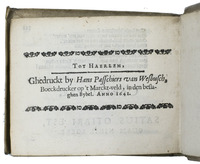 Tot Haerlem,
Ghedruckt by Hans Passchiers van Wesbusch,
Boeckdrucker op 't Marckt-veld, in den besla-
ghen Bybel. Anno 1642.